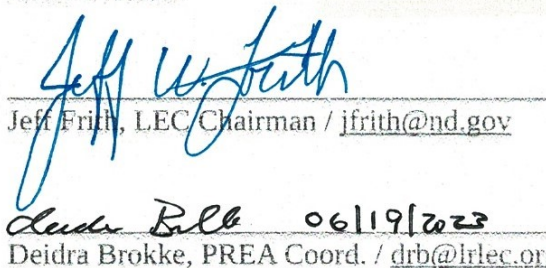 Jeff W. Frith
Jeff Frith, LEC Chairman / jfrith@nd.gov
06/19/2023
Deidra Brokke, PREA Coord. / drb@lrlec.or